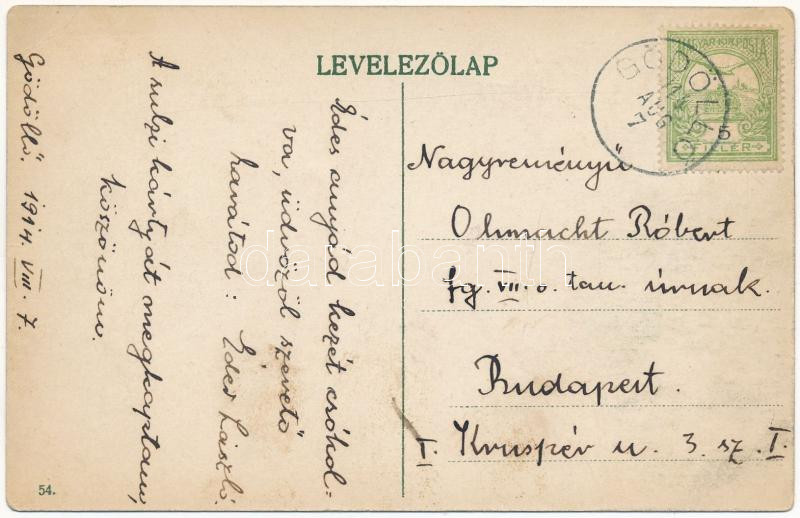 LEVELEZŐLAP
Gödöllő. 1914. VIII. 7.
A sulzi kártyát megkaptam,
köszönöm.
Édes anyád kezét csókol-
va, üdvözöl szerető
barátod: Éder László.
MAGYAR KIR. POSTA
5
FILLÉR
GÖDÖLLŐ
AUG
7
Nagyreményű
Ohmacht Róbert
fg. VII. o. tan. úrnak.
Budapest.
I. Kruspér u. 3. sz. I.
54.
darabanth